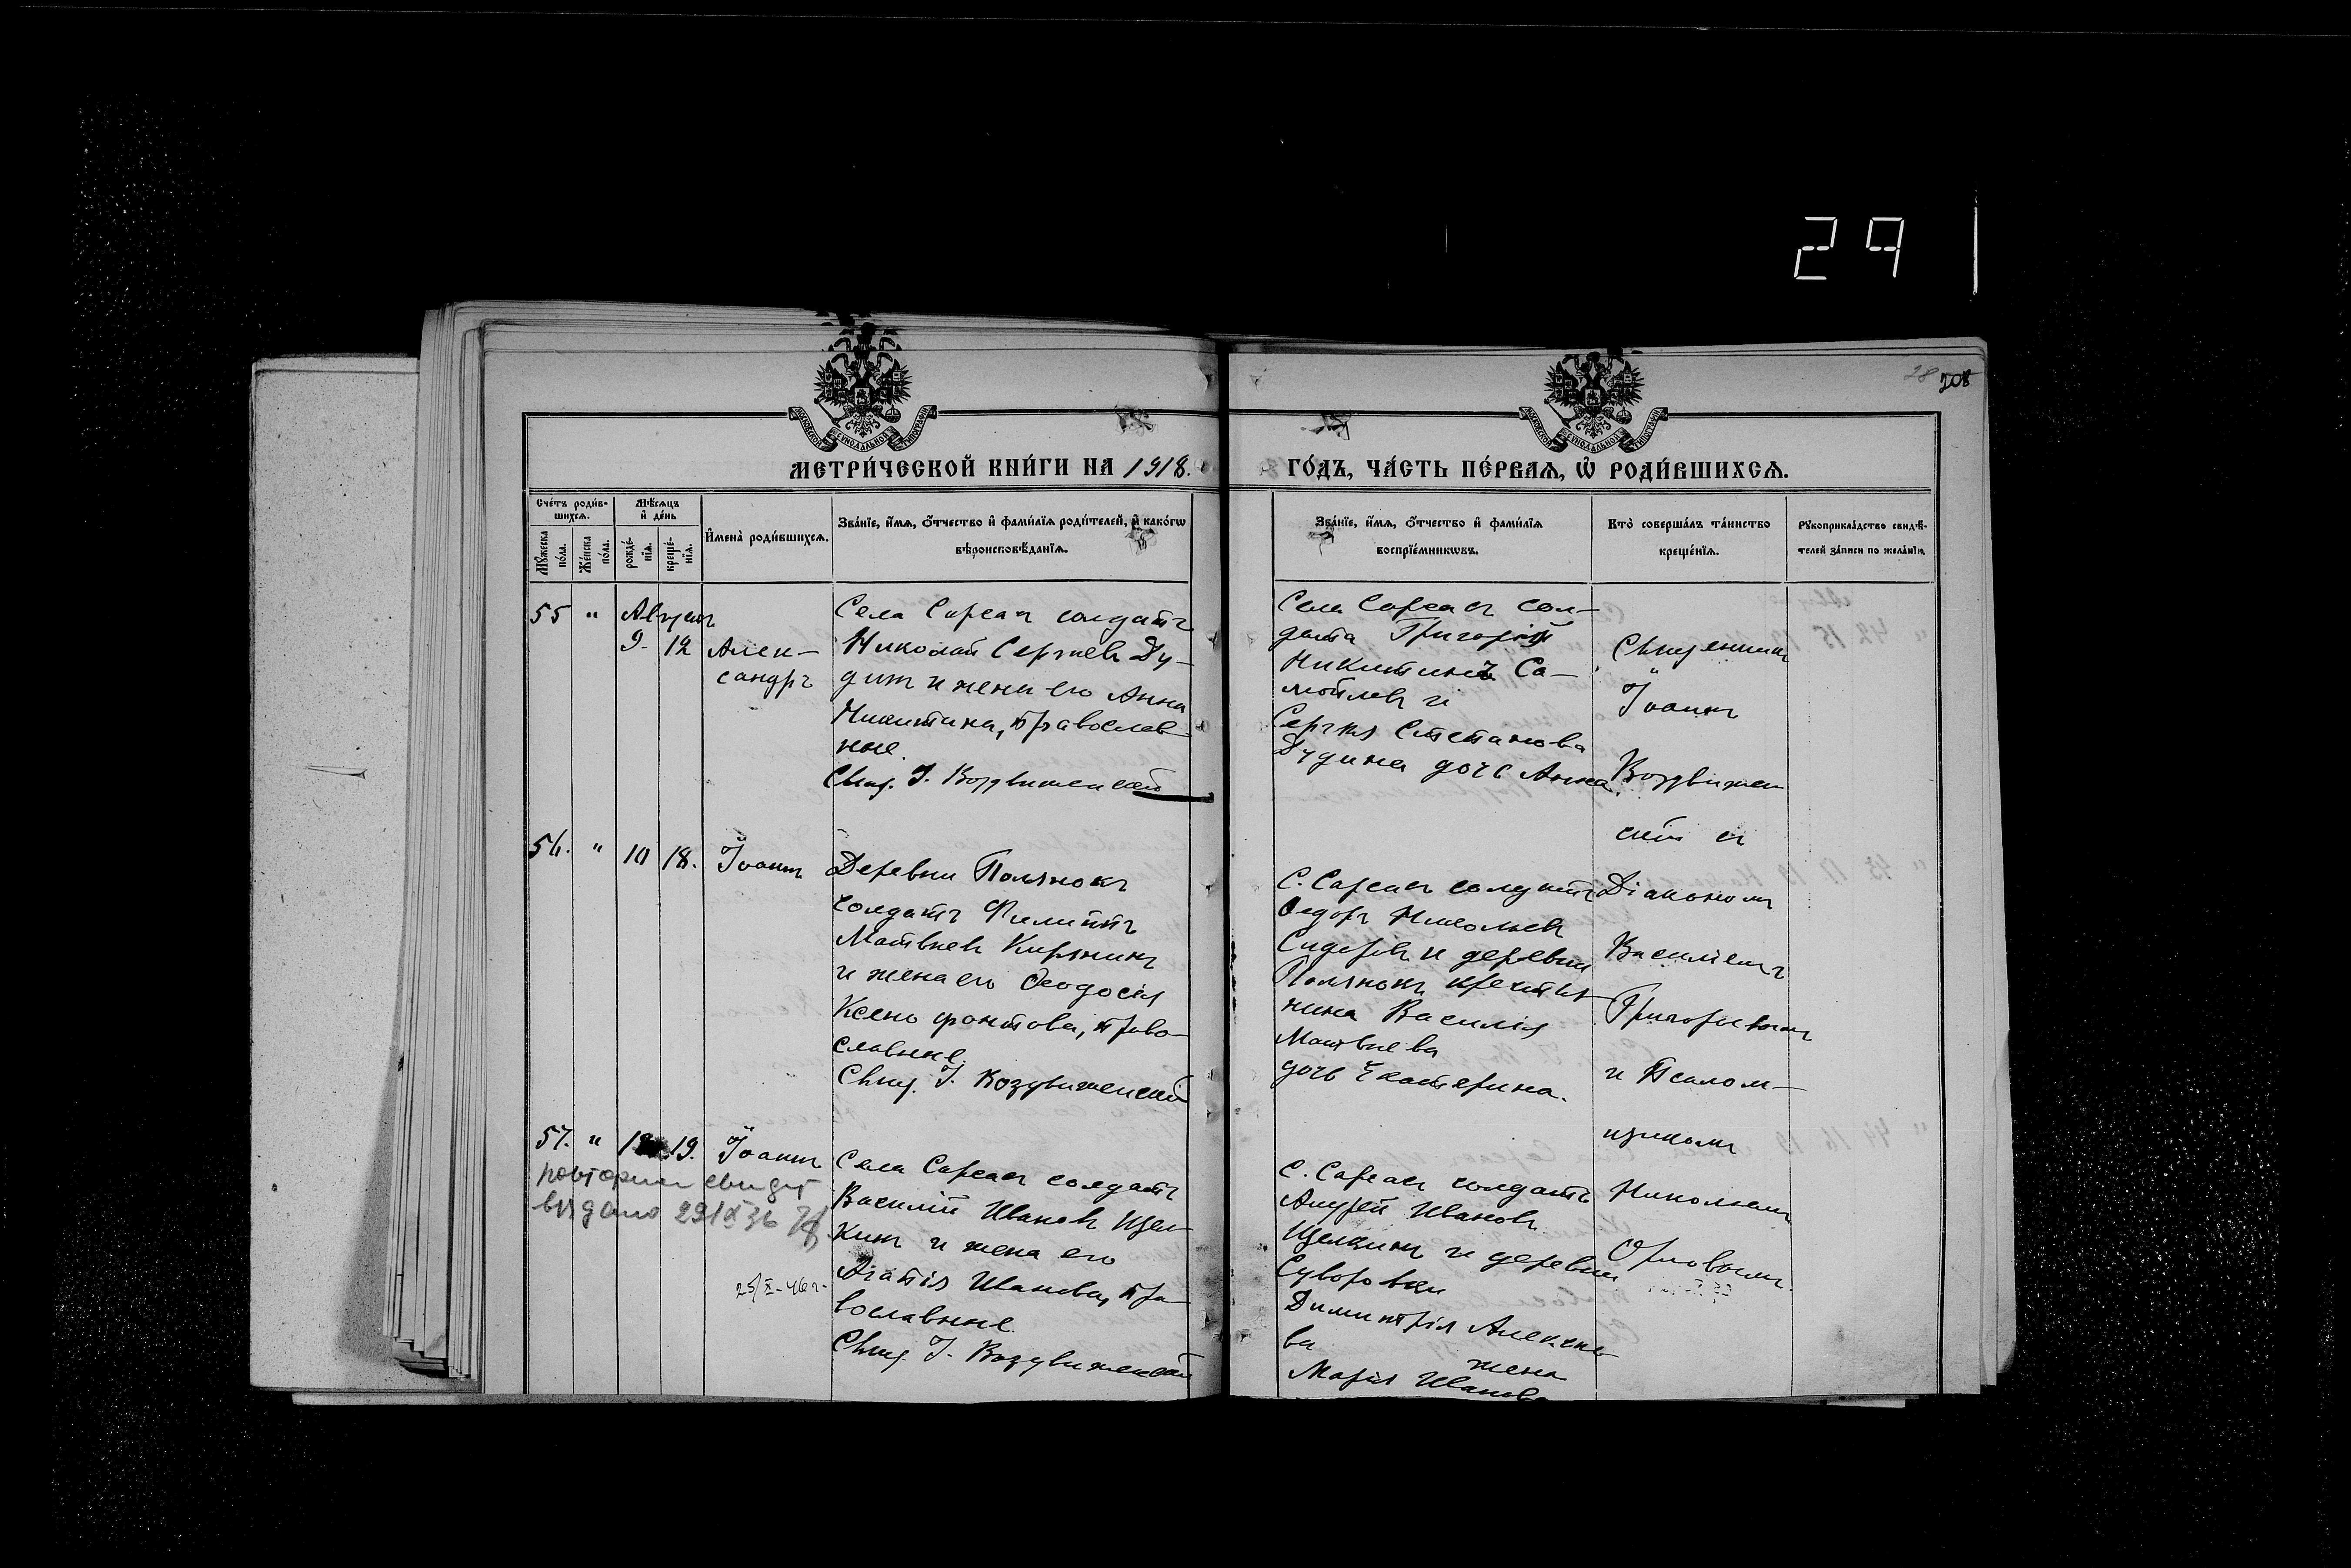 29
28 208
МЕТРИ́ЧЕСКОЙ КНИ́ГИ НА 1918.
ГО́ДЪ, ЧА́СТЬ ПЕ́РВАЯ, Ѡ РОДИ́ВШИХСЯ.
Сче́тъ роди́в-
шихся.
Мꙋ́жеска по́ла.
Же́нска по́ла.
Мѣ́сяцъ и де́нь
рожде́-нїя.
креще́-нїя.
Имена̀ роди́вшихся.
Зва́нїе, и́мя, о́тчество и фами́лїя роди́телей, и како́гѡ
вѣроисповѣ́данїя.
Зва́нїе, и́мя, о́тчество и фами́лїя
воспрїе́мникѡвъ.
Кто̀ соверша́лъ та́инство
креще́нїя.
Рꙋкоприкла́дство свидѣ́-
телей за́писи по жела́нїю.
55 "
Августъ
9. 12
Алек-
сандръ
Села Сарсаз солдатъ
Николай Сергѣев Ду-
дин и жена его Анна
Никитина, православ-
ные.
Свящ. І. Воздвиженскій
Села Сарсаз сол-
дата Григорій
Никитинъ Са-
мойлов и
Сергѣя Степанова
Дудина дочь Анна.
Священник
Іоанн
Воздвижен-
скій съ
Діаконом
Василіем
Григорьевым
и Псалом-
щиком
Николаем
Орловым.
56. " 10 18. Іоанн
Деревни Полянок
солдатъ Филиппъ
Матвѣев Кирянин
и жена его Ѳеодосія
Ксенофонтова, право-
славные.
Свящ. І. Воздвиженскій
С. Сарсаз солдатъ
Ѳедоръ Николаев
Сидоров и деревни
Полянок крестья-
нина Василія
Матвѣева
дочь Екатерина.
57. " 19. Іоанн
повторни свидет
выдано 29/X 36
25/X-46г.
Села Сарсаз солдатъ
Василій Иванов Щел-
кин и жена его
Агапія Иванова, пра-
вославные.
Свящ. І. Воздвиженскій
С. Сарсаз солдатъ
Андрей Иванов
Щелкин и деревни
Суворовки
Димитрія Алексѣе-
ва
жена
Марія Иванова